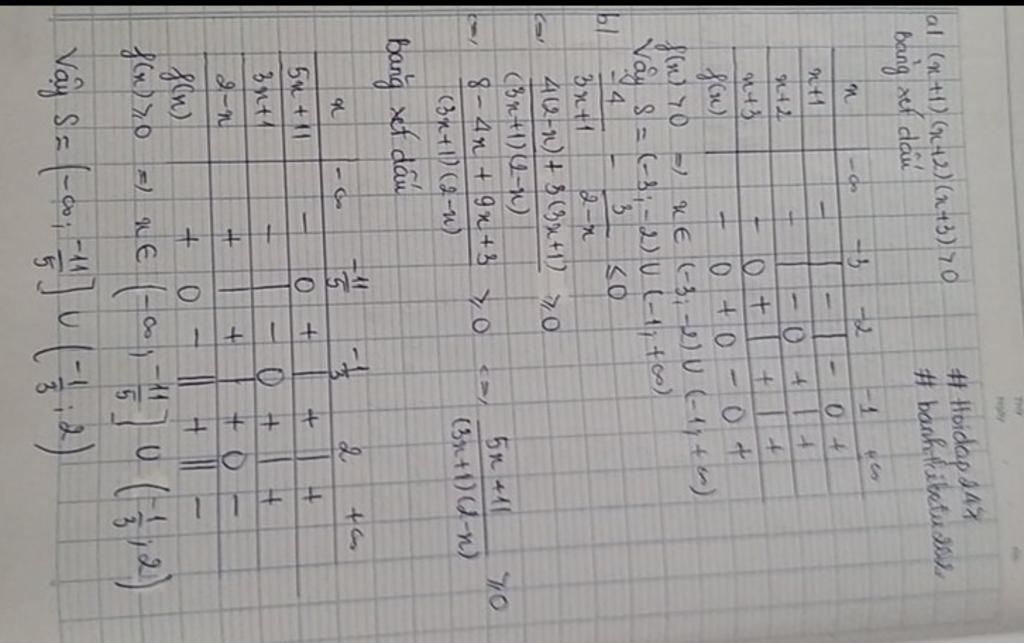 # Hoidap247
# banhkhibatu2k2.
a) (x+1)(x+2)(x+3)>0
Bảng xét dấu
x -∞ -3 -2 -1 +∞
x+1 - | - | - 0 +
x+2 - | - 0 + | +
x+3 - 0 + | + | +
f(x) - 0 + 0 - 0 +
f(x) >0 => x ∈ (-3;-2) U (-1;+∞)
Vậy S = (-3;-2) U (-1;+∞)
b) -4/3x+1 - 3/2-x ≤ 0
<=> 4(2-x) + 3(3x+1)/(3x+1)(2-x) ≥ 0
<=> 8-4x+9x+3/(3x+1)(2-x) ≥ 0 <=> 5x+11/(3x+1)(2-x) ≥ 0
Bảng xét dấu
x -∞ -11/5 -1/3 2 +∞
5x+11 - 0 + | + | +
3x+1 - | - 0 + | +
2-x + | + | + 0 -
f(x) + 0 - || + || -
f(x) ≥ 0 => x ∈ (-∞; -11/5] U (-1/3; 2)
Vậy S = (-∞; -11/5] U (-1/3; 2)